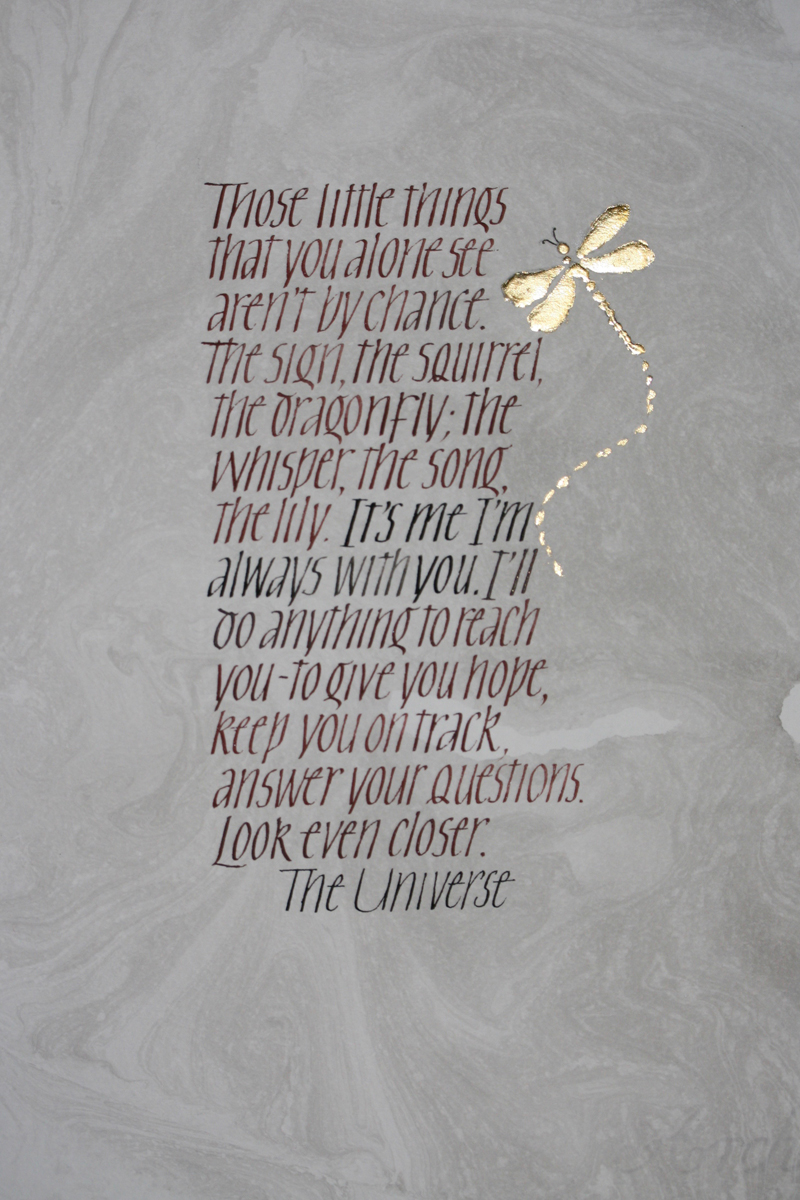 Those little things
that you alone see
aren't by chance.
The sign, the squirrel,
the dragonfly; the
whisper, the song,
the lily. It's me I'm
always with you. I'll
do anything to reach
you - to give you hope,
keep you on track,
answer your questions.
Look even closer.
The Universe